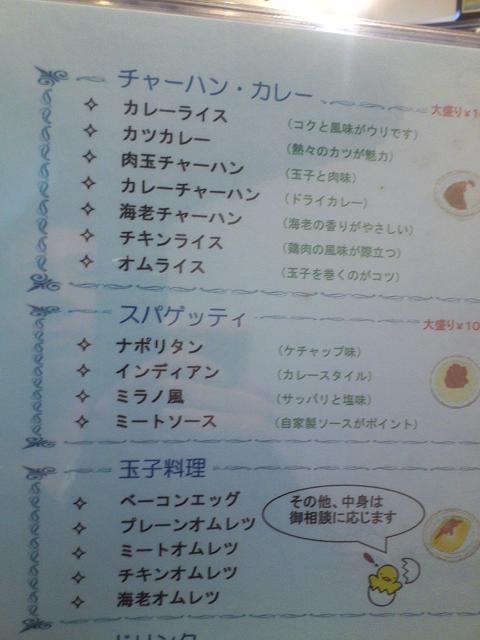 チャーハン・カレー
大盛り¥10
カレーライス (コクと風味がウリです)
カツカレー (熱々のカツが魅力)
肉玉チャーハン (玉子と肉味)
カレーチャーハン (ドライカレー)
海老チャーハン (海老の香りがやさしい)
チキンライス (鶏肉の風味が際立つ)
オムライス (玉子を巻くのがコツ)
スパゲッティ
大盛り¥10
ナポリタン (ケチャップ味)
インディアン (カレースタイル)
ミラノ風 (サッパリと塩味)
ミートソース (自家製ソースがポイント)
玉子料理
ベーコンエッグ
プレーンオムレツ
ミートオムレツ
チキンオムレツ
海老オムレツ
その他、中身は
御相談に応じます
ドリンク